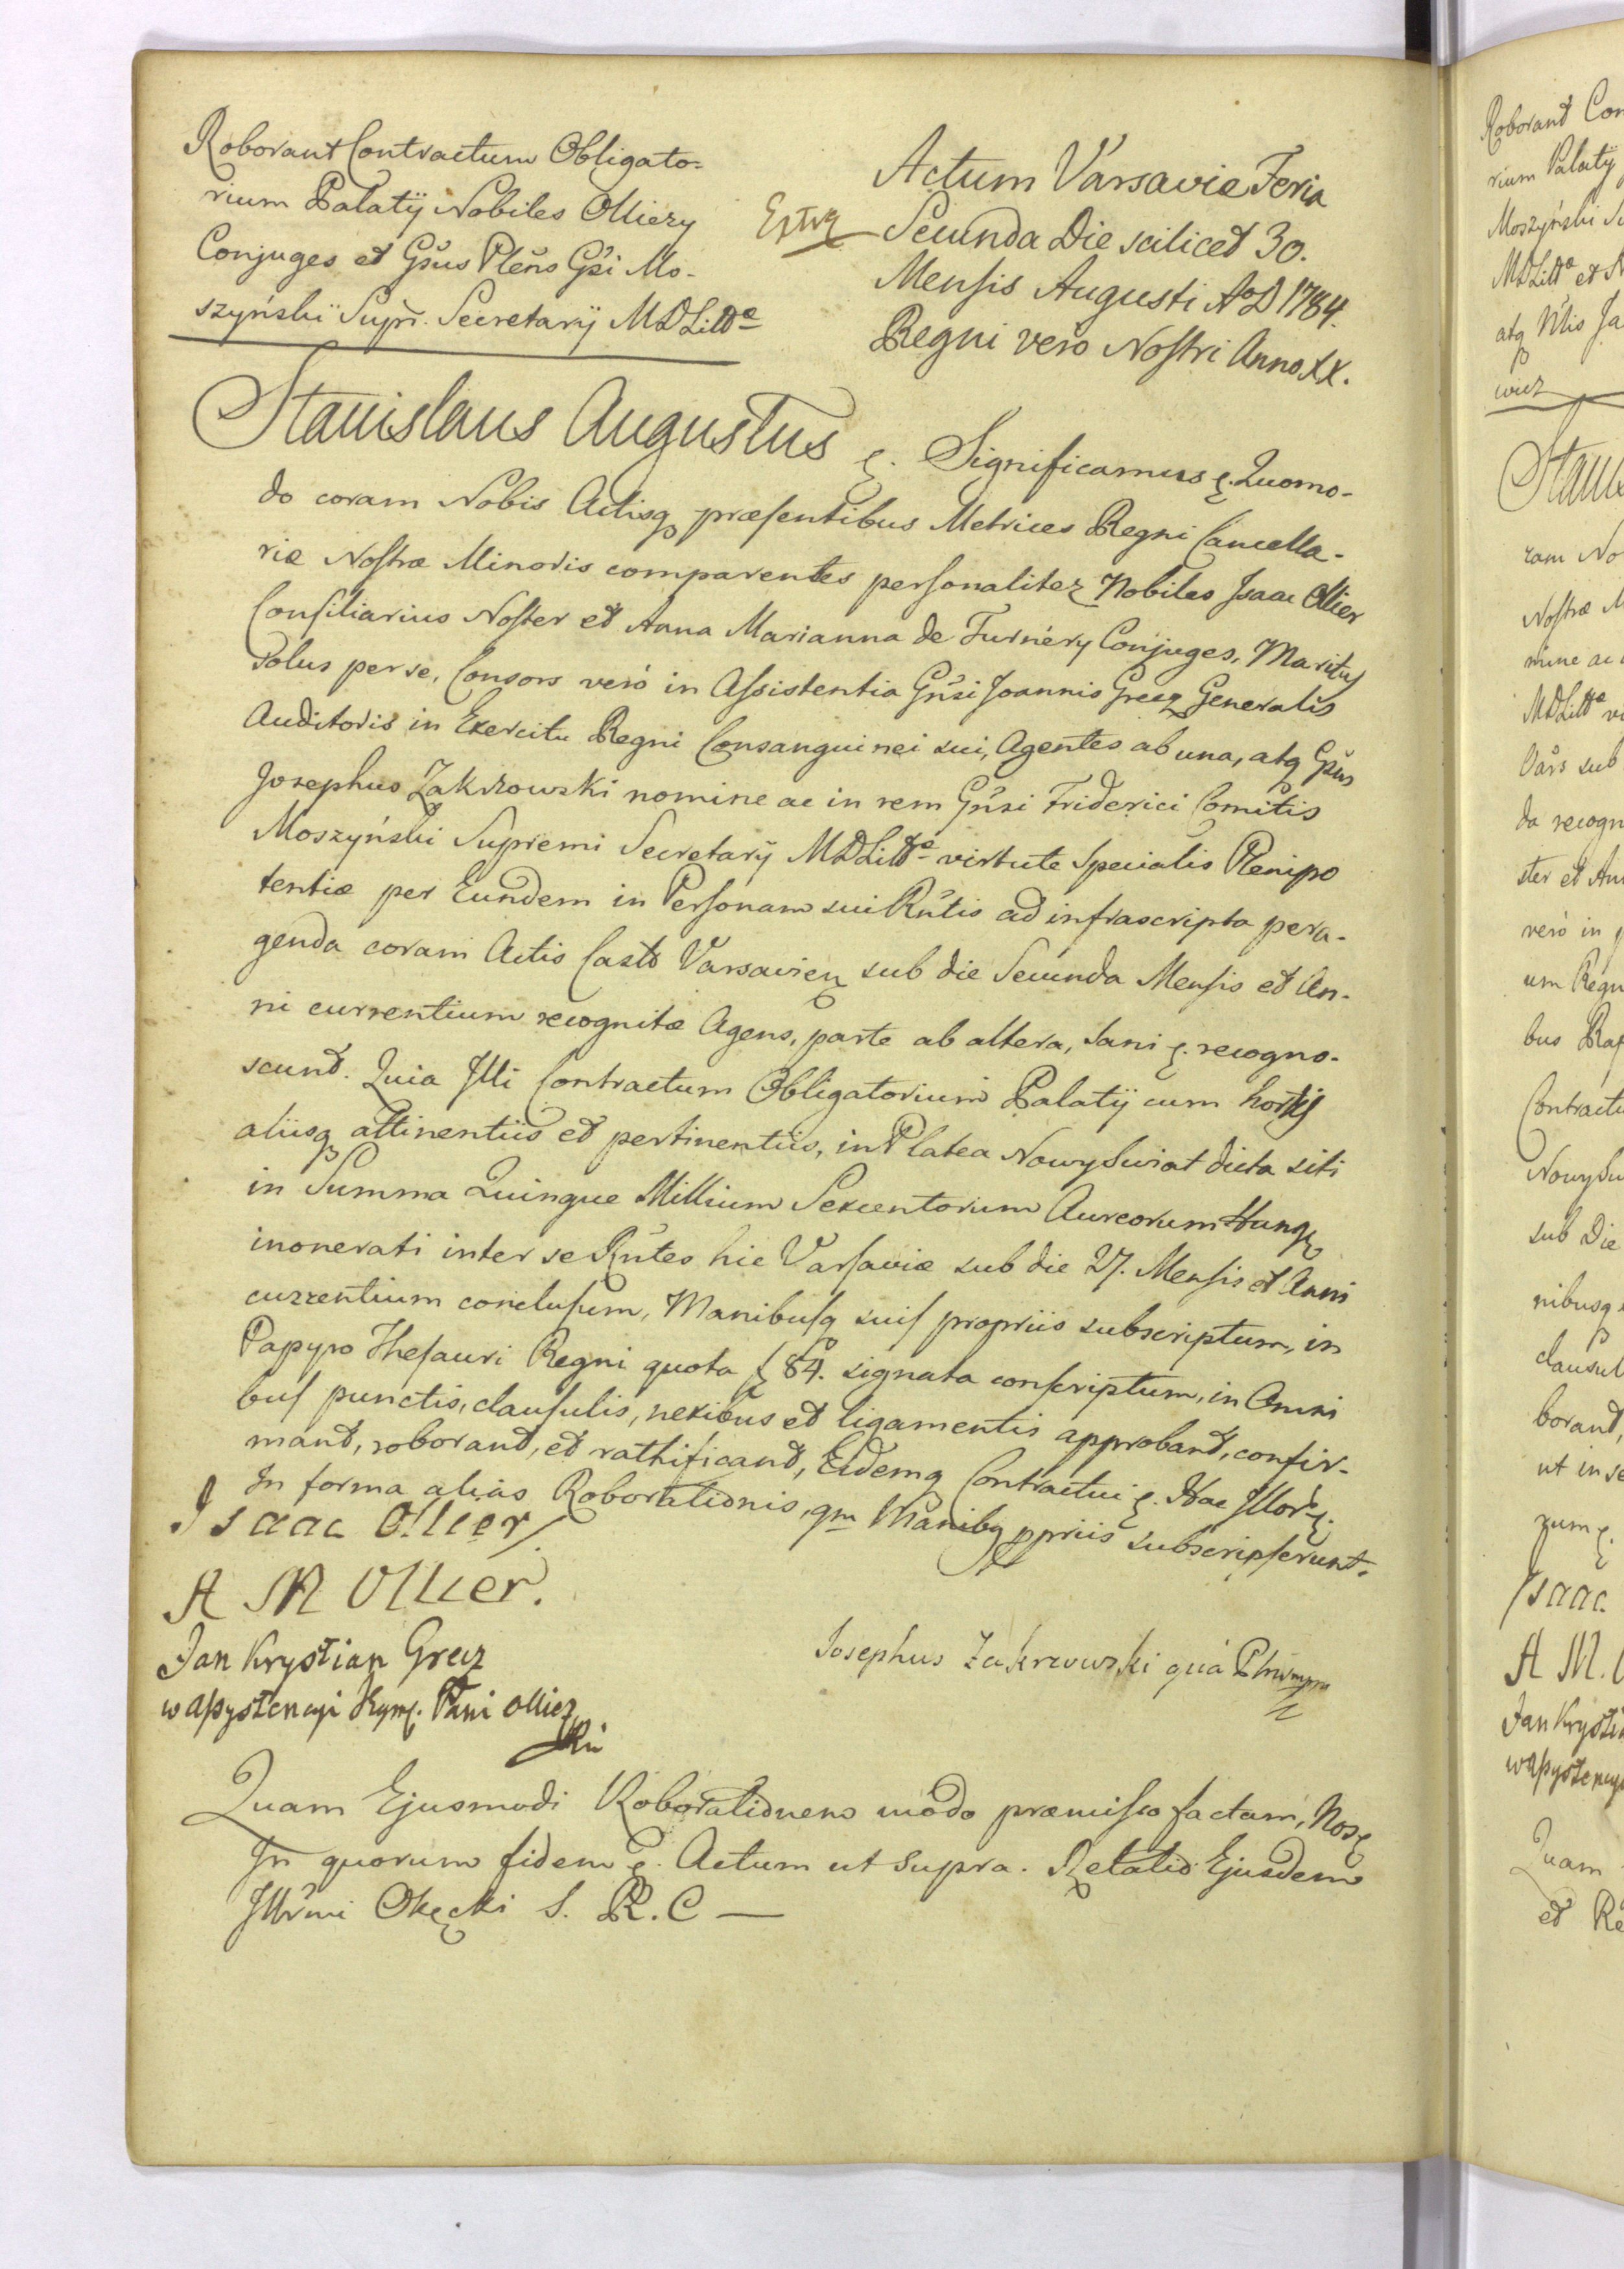 Roborant Contractum Obligato=
rium Palatij Nobiles Olliery
Conjuges et Gsus Pleñs Gsi Mo-
szyński Supr. Secretarij MDLittæ
Extrą
Actum Varsaviæ Feria
Secunda Die scilicet 30.
Mensis Augusti AoD 1784.
Regni vero Nostri Anno XX.
Stanislaus Augustus ę. Significamus ę. Quomo-
do coram Nobis Actisq præsentibus Metrices Regni Cancella-
riæ Nostræ Minoris comparentes personaliter Nobiles Isaac Ollier
Consiliarius Noster et Anna Marianna de Turnéry Conjuges, Maritus
Solus per se, Consors veró in Assistentia Gñsi Joannis Grecz Generalis
Auditoris in Exercitu Regni Consanguinei sui, Agentes ab una, atq Gsus
Josephus Zakrzowski nomine ac in rem Gñsi Friderici Comitis
Moszyński Supremi Secretarij MDLittæ virtute specialis Plenipo
tentiæ per Eundem in Personam sui Rñtis ad infrascripta pera-
genda coram Actis Castr Varsavien sub die Secunda Mensis et An-
ni currentium recognitæ Agens, parte ab altera, sani ę. recogno-
scunt. Quia Illi Contractum Obligatorium Palatij cum hortis
aliisq attinentiis et pertinentiis, in Platea Nowy Swiat dicta siti
in Summa Quinque Millium Sexcentorum Aureorum Hung
inonerati inter se Rñtes hic Varsaviæ sub die 27. Mensis et Anni
currentium conclusum, Manibusq suis propriis subscriptum, in
Papyro Thesauri Regni quota f 84. signata conscriptum, in Omni
bus punctis, clausulis, nexibus et ligamentis approbant, confir-
mant, roborant, et rathificant, Eidemq Contractui ę. Hac Illor ę.
In forma alias Roborationis, qm Manibq ppriis subscripserunt.
Isaac Ollier.
A M Ollier.
Jan Krystian Grecz
w assystencyi Jkym. Pani Ollier
Josephus Zakrzowski quá
Quam Ejusmodi Roborationem modo præmisso factam, Nos ę
In quorum fidem ę. Actum ut supra. Relatio Ejusdem
Illrmi Okęcki S. R. C —
Roborant Con
rium Palatij
Moszyński Su
MDLittæ et
atq Nblis Ja
wicz
Stanis
ram No
Nostræ M
mine ac
MDLittæ vi
Vars sub
da recogn
ster et An
veró in
um Regn
bus
Contractu
Nowy Sw
sub Die
nibusq
clausul
borant,
ut in se
rum ę.
Isaac
A M. O
Jan Krysti
w assystency
Quam
et Re